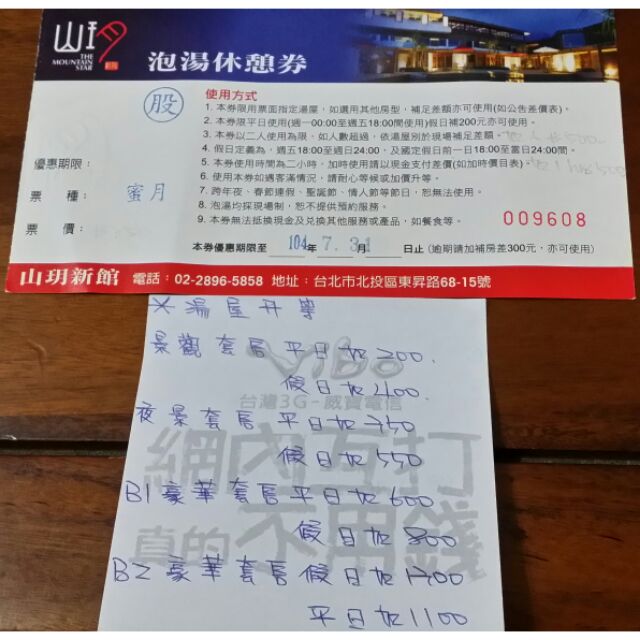 山玥
THE
MOUNTAIN
STAR
泡湯休憩券
股
使用方式
1. 本券限用票面指定湯屋，如選用其他房型，補足差額亦可使用(如公告差價表)。
2. 本券限平日使用(週一00:00至週五18:00間使用)假日補200元亦可使用。
3. 本券以二人使用為限，如人數超過，依湯屋別於現場補足差額。
4. 假日定義為，週五18:00至週日24:00，及國定假日前一日18:00至當日24:00間。
5. 本券使用時間為二小時，加時使用請以現金支付差價(如加時價目表)。
6. 本券使用如遇客滿情況，請耐心等候或加價升等。
7. 跨年夜、春節連假、聖誕節、情人節等節日，恕無法使用。
8. 泡湯均採現場制，恕不提供預約服務。
9. 本券無法抵換現金及兌換其他服務或產品，如餐食等。
優惠期限：
票 種： 蜜月
票 價：
009608
本券優惠期限至 104年 7. 31 月 日止 (逾期請加補房差300元，亦可使用)
山玥新館 電話：02-2896-5858 地址：台北市北投區東昇路68-15號
湯屋升等
景觀套房 平日加200.
假日加400
Vibo
台灣3G-威寶電信
夜景套房 平日加350
假日加550
網內互打
B1豪華套房平日加600
假日加800
真的不用錢
B2豪華套房假日加1300
平日加1100